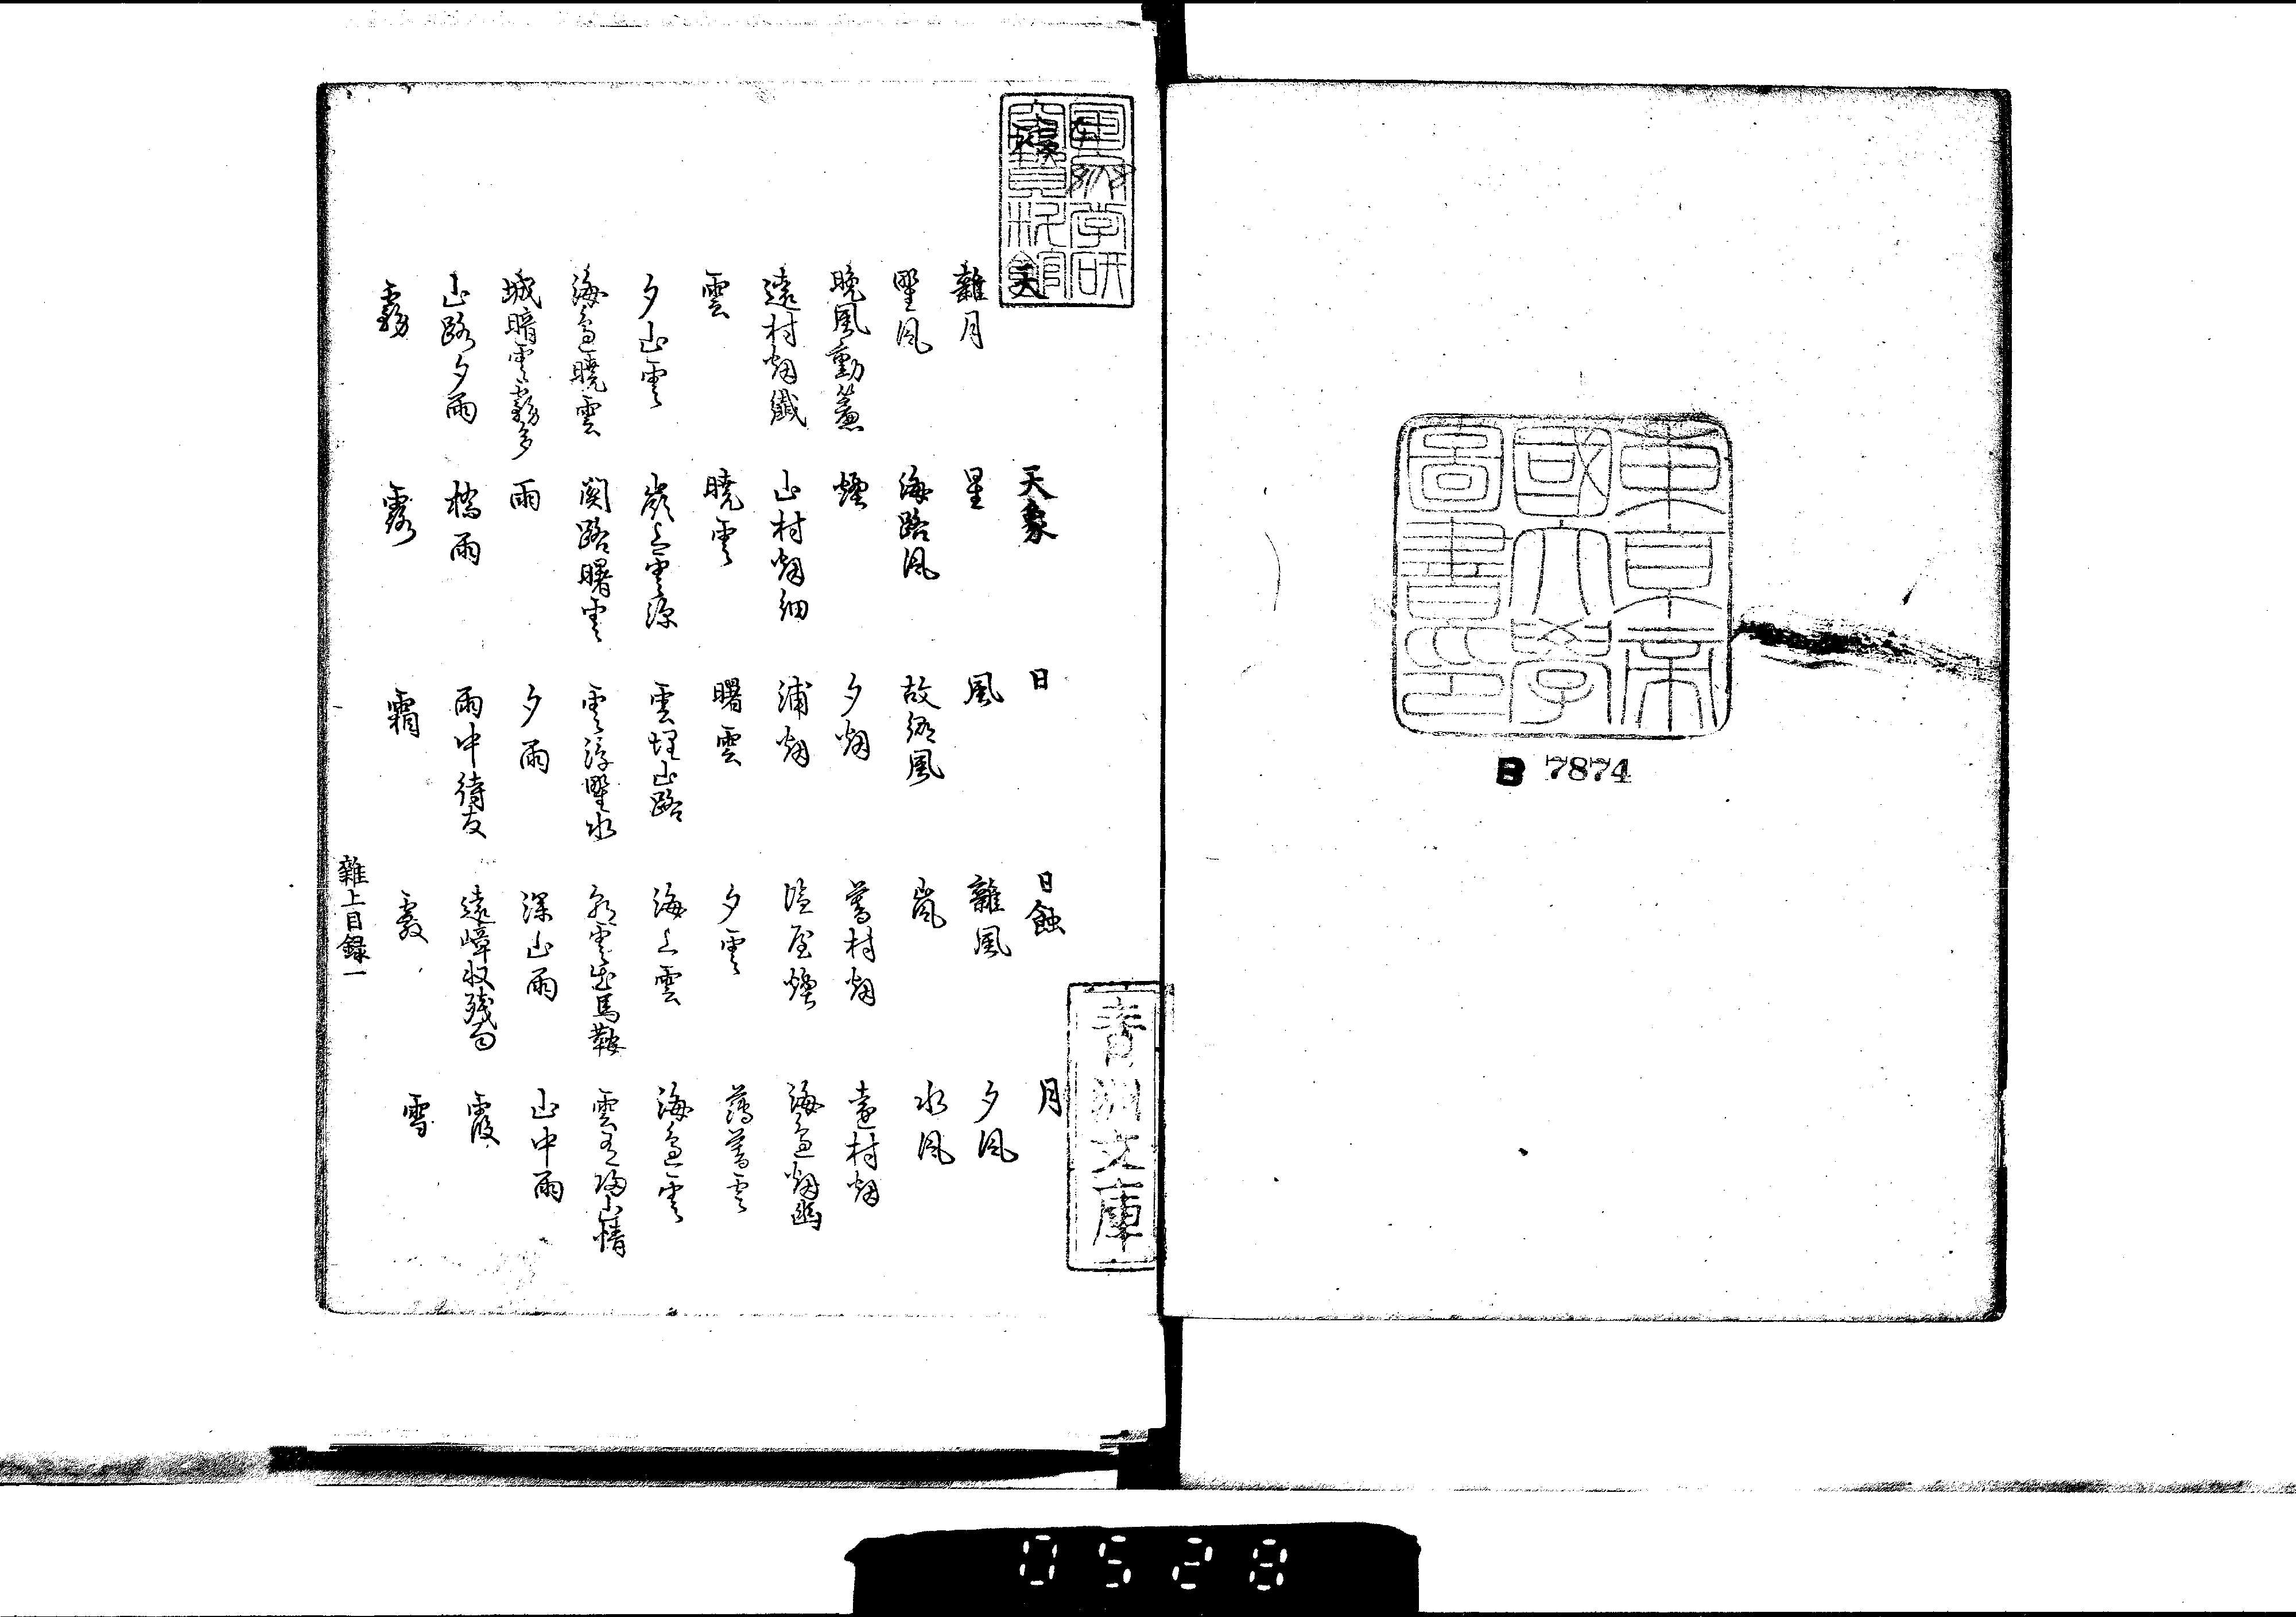 東京帝
國大學
圖書印
B 7874
天象 日 日蝕 月
雜月 星 風 雜風 夕風
野風 海路風 故郷風 嵐 水風
晩風動簾 煙 夕烟 暮村烟 遠村烟
遠村烟纖 山村烟細 浦烟 塩屋煙 海邊烟幽
雲 曉雲 曙雲 夕雲 薄暮雲
夕山雲 嶺上雲深 雲埋山路 海上雲 海邊雲
海邊曉雲 関路曙雲 雲浮野水 雲馬鞍 雲有帰山情
城暗雲霧多 雨 夕雨 深山雨 山中雨
山路夕雨 橋雨 雨中待友 遠嶂収残雨 霞
霧 露 霜 霰 雪
雜上目録一
青洲文庫
0528